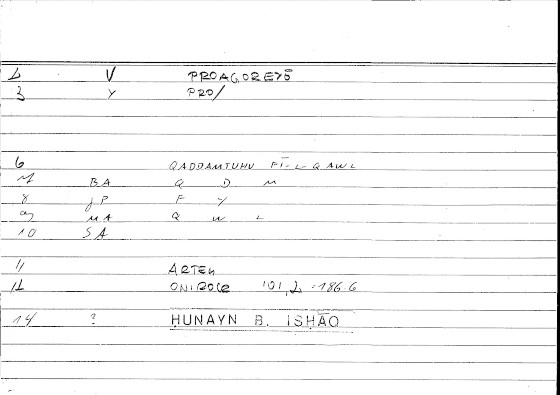 2 V PROAGOREYŌ
3 Y PRO/
6 QADDAMTUHU FĪ-L-QAWL
7 BA Q D M
8 JP F Y
9 MA Q W L
10 SA
11 ARTEM
12 ONIROCR 101,2 = 186.6
14 ? ḤUNAYN B. ISḤĀQ